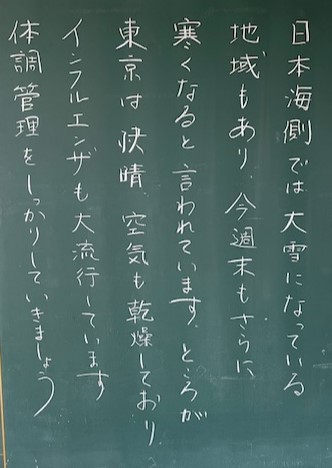 日本海側では大雪になっている
地域もあり、今週末もさらに
寒くなると言われています。ところが
東京は快晴、空気も乾燥しており
インフルエンザも大流行しています
体調管理をしっかりしていきましょう